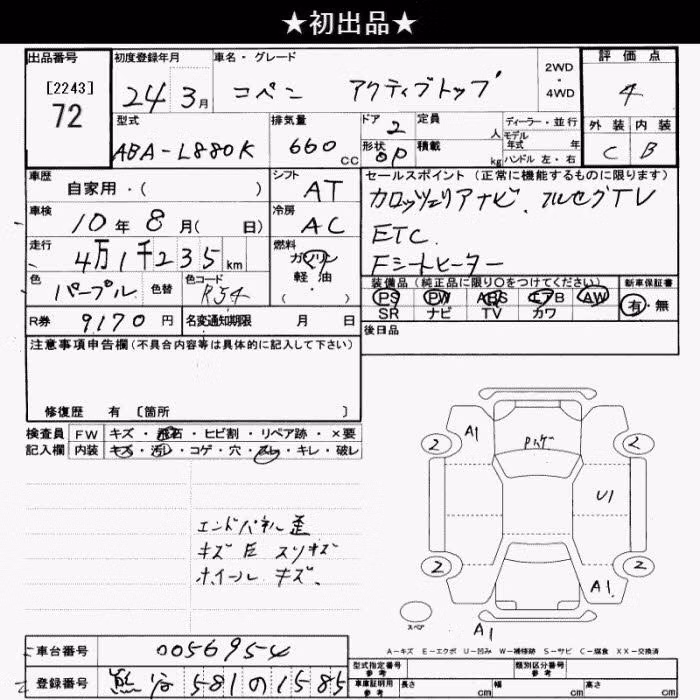 ★初出品★
出品番号 [2243] 72
初度登録年月 24年 3月
車名・グレード コペン アクティブトップ
2WD・4WD
評価点 4
型式 ABA-L880K
排気量 660 CC
ドア 2
形状 OP
定員 人
積載 kg
ディーラー・並行
モデル年式 年
ハンドル 左・右
外装 C
内装 B
車歴 自家用・( )
シフト AT
セールスポイント (正常に機能するものに限ります)
カロッツェリアナビ、フルセグTV
ETC
Fシートヒーター
車検 10年 8月( 日)
冷房 AC
走行 4万1千235km
燃料 ガソリン 軽・油 ( )
色 パープル 色替
色コード R54
装備品 (純正品に限り○をつけてください)
PS PW ABS エアB AW
SR ナビ TV カワ
新車保証書 有・無
R券 9170円
名変通知期限 月 日
後日品
注意事項申告欄 (不具合内容等は具体的に記入して下さい)
修復歴 有 [箇所 ]
検査員記入欄
FW キズ・飛石・ヒビ割・リペア跡・×要
内装 キズ・汚レ・コゲ・穴・スレ・キレ・破レ
エンドパネル歪
キズE スリキズ
ホイールキズ
A1
2 2
U1
2 2
A1
スペア
A1
A-キズ E-エクボ U-凹み W-補修跡 S-サビ C-腐食 XX-交換済
車台番号 0056954
登録番号 熊谷 581 の 1585
型式指定番号 参考
類別区分番号 参考
車庫証明用 参考 長さ cm 幅 cm 高さ cm